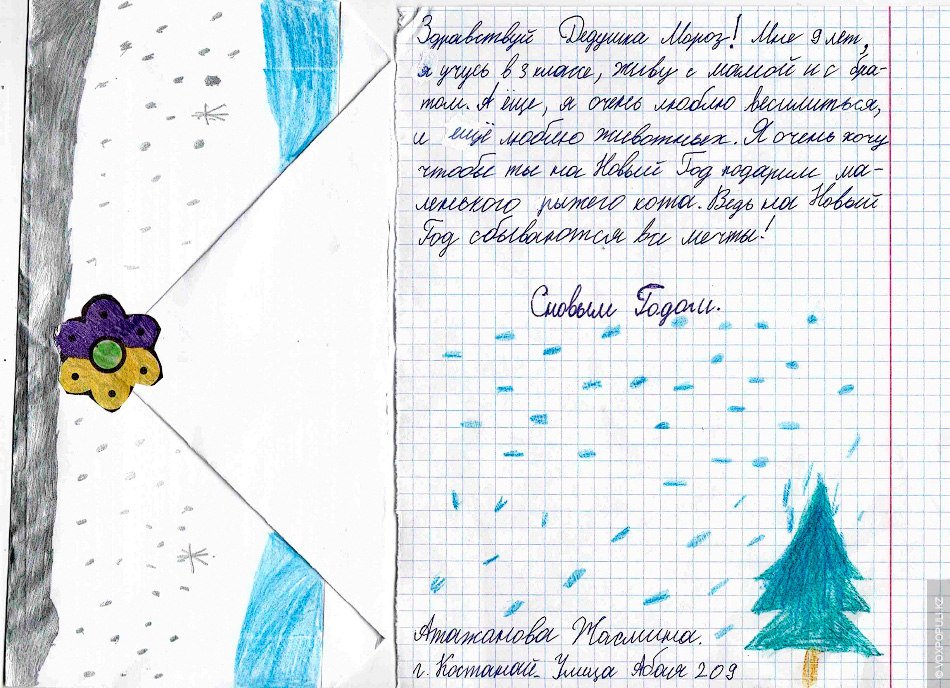 Здравствуй Дедушка Мороз! Мне 9 лет,
я учусь в 3 классе, живу с мамой и с бра-
том. А ёще, я очень люблю весилиться,
и ещё люблю животных. Я очень хочу
чтобы ты на Новый Год подарил ма-
ленского рыжего кота. Ведь на Новый
Год сбываются все мечты!
Сновым Годом.
Атажанова Жасмина.
г. Костанай. Улица Абая 209